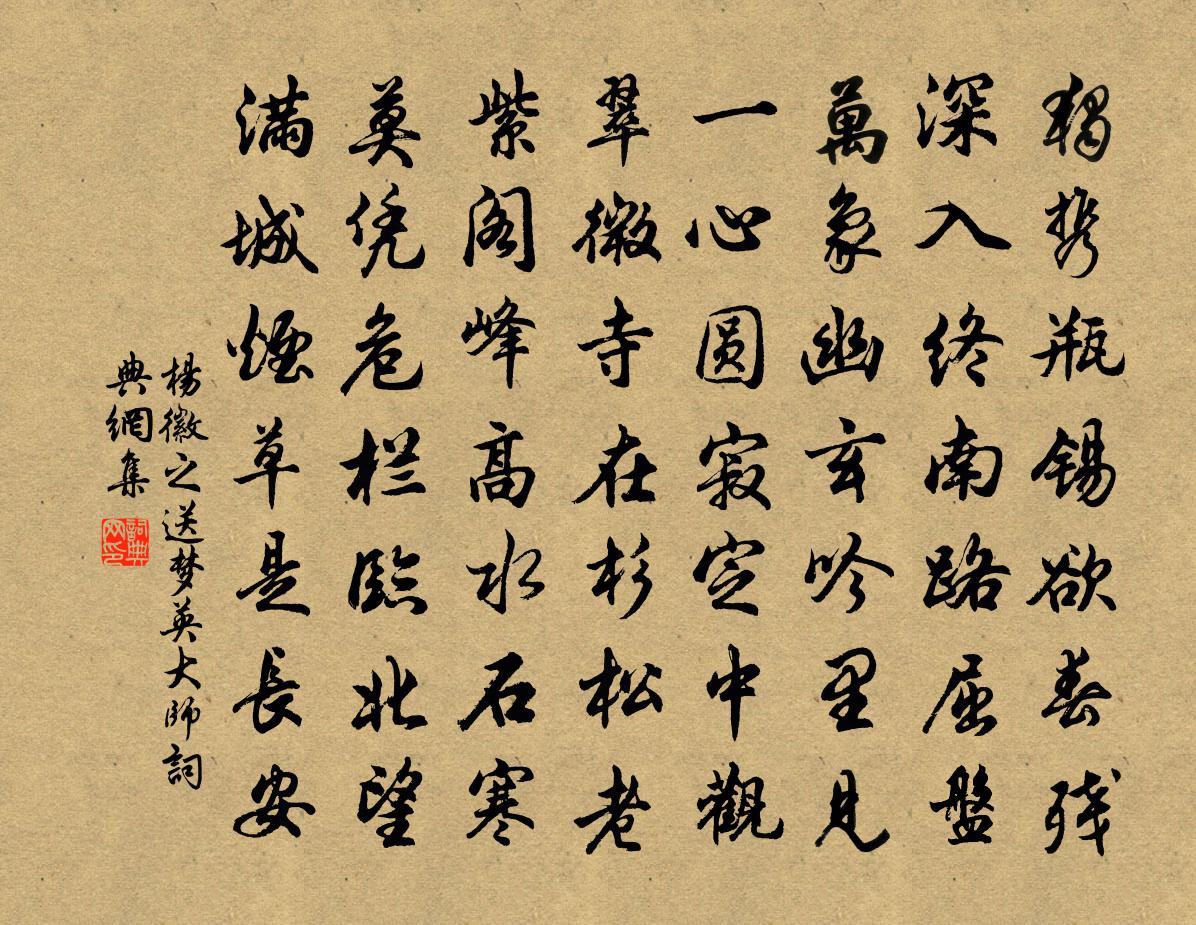 獨携瓶錫欲春残
深入终南路屈盤
萬象幽玄吟里見
一心圆寂定中觀
翠微寺在杉松老
紫阁峰高水石寒
莫凭危栏臨北望
满城煙草是長安
楊徽之送梦英大師詞
典網集
詞典
网印